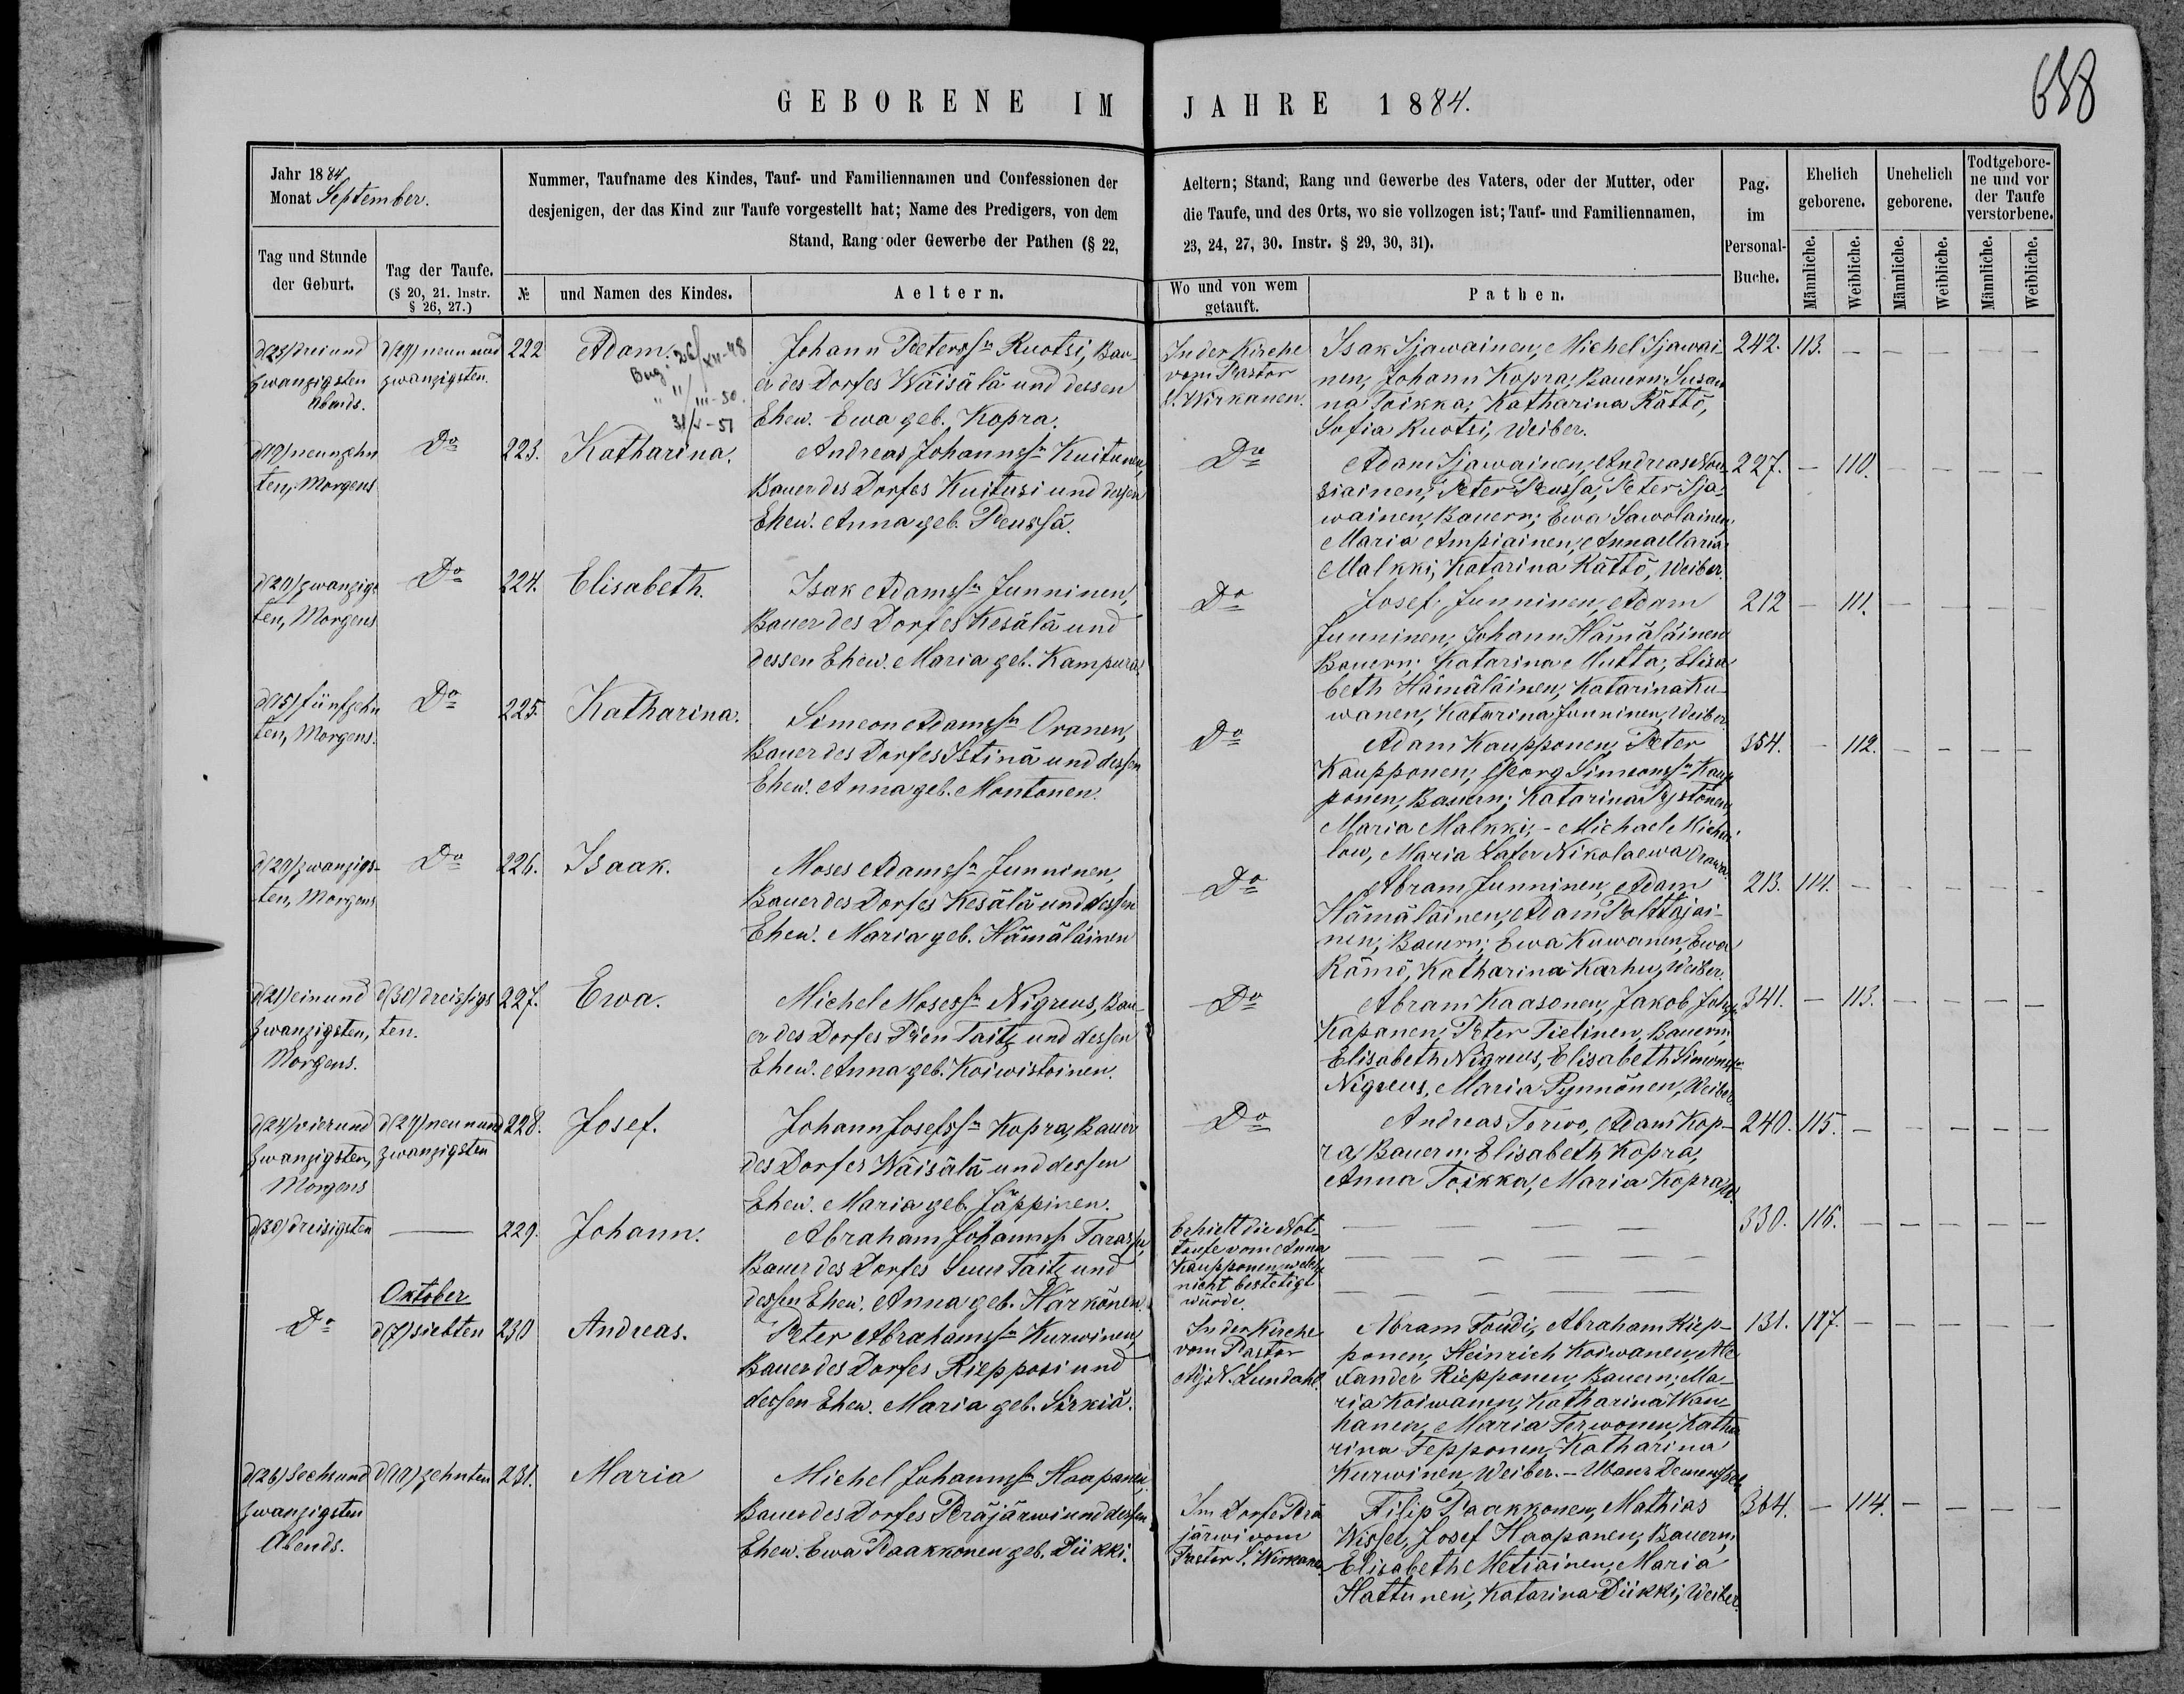 GEBORENE IM JAHRE 1884.
688
Jahr 1884
Monat September.
Nummer, Taufname des Kindes, Tauf- und Familiennamen und Confessionen der
desjenigen, der das Kind zur Taufe vorgestellt hat; Name des Predigers, von dem
Stand, Rang oder Gewerbe der Pathen (§ 22,
Aeltern; Stand, Rang und Gewerbe des Vaters, oder der Mutter, oder
die Taufe, und des Orts, wo sie vollzogen ist; Tauf- und Familiennamen,
23, 24, 27, 30. Instr. § 29, 30, 31).
Pag.
im
Personal-
Buche.
Ehelich
geborene.
Unehelich
geborene.
Todtgebore-
ne und vor
der Taufe
verstorbene.
Tag und Stunde
der Geburt.
Tag der Taufe.
(§ 20, 21. Instr.
§ 26, 27.)
№
und Namen des Kindes.
Aeltern.
Wo und von wem
getauft.
Pathen.
Männliche.
Weibliche.
Männliche.
Weibliche.
Männliche.
Weibliche.
d(23) drei und
zwanzigsten
Abends.
d(29) neun und
zwanzigsten.
222
Adam.
26/XII-48
"11/III-50.
31/V-51
Johann Peterss[n] Ruotsi, Bau-
er des Dorfes Wäisälä und dessen
Ehew. Ewa geb. Kopra.
In der Kirche
vom Pastor
S. Wirkanen.
Isak Sjawainen, Michel Sjawai-
nen, Johann Kopra, Bauern; Susan
na Toikka, Katharina Rättö,
Sofia Ruotsi, Weiber.
242. 113. — — — — —
d(19) neunzehn
ten, Morgens
Do
223.
Katharina.
Andreas Johannss[n] Kuitunen,
Bauer des Dorfes Kuitusi und dessen
Ehew. Anna geb. Peussä.
Do
Adam Sjawainen, Andreas Nou-
siainen, Peter Peussa, Peter Sja-
wainen, Bauern; Ewa Sawolainen,
Maria Ampiainen, Anna Maria
Malkki, Katarina Rättö, Weiber.
227. — 110. — — — —
d(20) zwanzigs
ten, Morgens
Do
224.
Elisabeth.
Isak Adamss[n] Junninen,
Bauer des Dorfes Kesälä und
dessen Ehew. Maria geb. Kampura.
Do
Josef Junninen, Adam
Junninen, Johann Hämäläinen
Bauern; Katarina Mutta, Elisa
beth Hämäläinen, Katarina Ku-
wanen, Katarina Junninen, Weiber.
212 — 111. — — — —
d(15) fünfzehn
ten, Morgens.
Do
225.
Katharina.
Simeon Adamss[n] Oranen,
Bauer des Dorfes Istinä und dessen
Ehew. Anna geb. Montonen.
Do
Adam Kaupponen, Peter
Kaupponen, Georg Simeonss[n] Kaup
ponen, Bauern; Katarina
Maria Malkki; - Michael Michai
low, Maria Nikolaewa
354. — 112. — — — —
d(20) zwanzigs-
ten, Morgens
Do
226.
Isaak.
Moses Adamss[n] Junninen,
Bauer des Dorfes Kesälä und dessen
Ehew. Maria geb. Hämäläinen
Do
Abram Junninen, Adam
Hämäläinen, Adam Polttajai-
nen, Bauern; Ewa Kuwanen, Ewa
Rämö, Katharina Karhu, Weiber.
213. 114. — — — — —
d(21) ein und
zwanzigsten,
Morgens.
d(30) dreissigs
ten.
227.
Ewa.
Michel Mosess[n] Nigreus, Bau-
er des Dorfes Pien Taitz und dessen
Ehew. Anna geb. Koiwistoinen.
Do
Abram Kaasonen, Jakob
Kapanen, Peter Tielinen, Bauern;
Elisabeth Nigreus, Elisabeth
Nigreus, Maria Pynnönen, Weiber
341. — 113. — — — —
d(24) vier und
zwanzigsten,
Morgens
d(29) neun und
zwanzigsten
228.
Josef.
Johann Josefss[n] Kopra, Bauer
des Dorfes Wäisälä und dessen
Ehew. Maria geb. Jäppinen.
Do
Andreas Terwo, Adam Kop-
ra, Bauern; Elisabeth Kopra,
Anna Toikka, Maria Kopra
240. 115. — — — — —
d(30) dreisigsten
—
229.
Johann.
Abraham Johannss[n]
Bauer des Dorfes Suur Taitz und
dessen Ehew. Anna geb. Härkönen.
Erhielt die Not-
taufe vom Anna
Kaupponen welche
nicht bestetigt
würde.
— — — — —
— — — — —
— — — — —
330. 116. — — — — —
Oktober
Do
d(7) siebten
230
Andreas.
Peter Abrahamss[n] Kurwinen,
Bauer des Dorfes Riepposi und
dessen Ehew. Maria geb. Sirkiä.
In der Kirche
vom Pastor
Lundahl.
Abram Toudi, Abraham Riep-
ponen, Heinrich Koiwanen, Ale
xander Riepponen, Bauern; Ma-
ria Koiwanen, Katharina Wan
hanen, Maria Terwonen, Katha
rina Tepponen, Katharina
Kurwinen, Weiber. -
131. 117. — — — — —
d(26) sechsund
zwanzigsten
Abends.
d(10) zehnten
231.
Maria
Michel Johannss[n] Haapanen,
Bauer des Dorfes Peräjärwi und dessen
Ehew. Ewa Paakkonen geb. Dükki.
Im Dorfe Perä
järwi vom
Pastor S. Wirkanen.
Filip Paakkonen, Mathias
Wissel, Josef Haapanen, Bauern;
Elisabeth Metiäinen, Maria
Hattunen, Katarina Dükki, Weiber.
364. — 114. — — — —